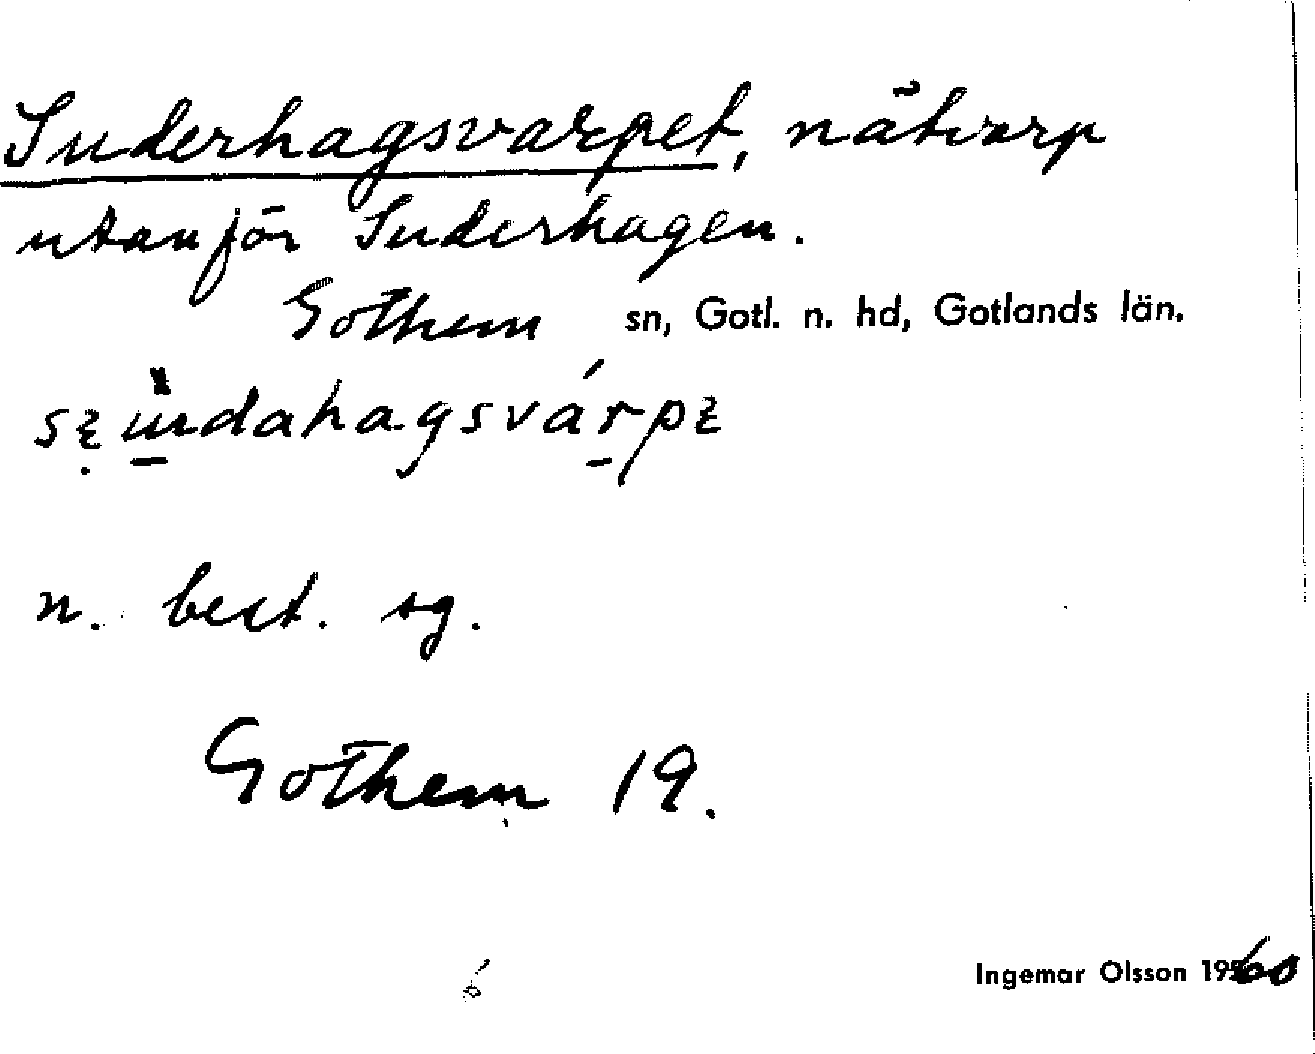 Suderhagsvarpet, nätvarp
utanför Suderhagen.
Gothem sn, Gotl. n. hd, Gotlands län.
n. best. sg.
Gothem 19.
6
Ingemar Olsson 1960